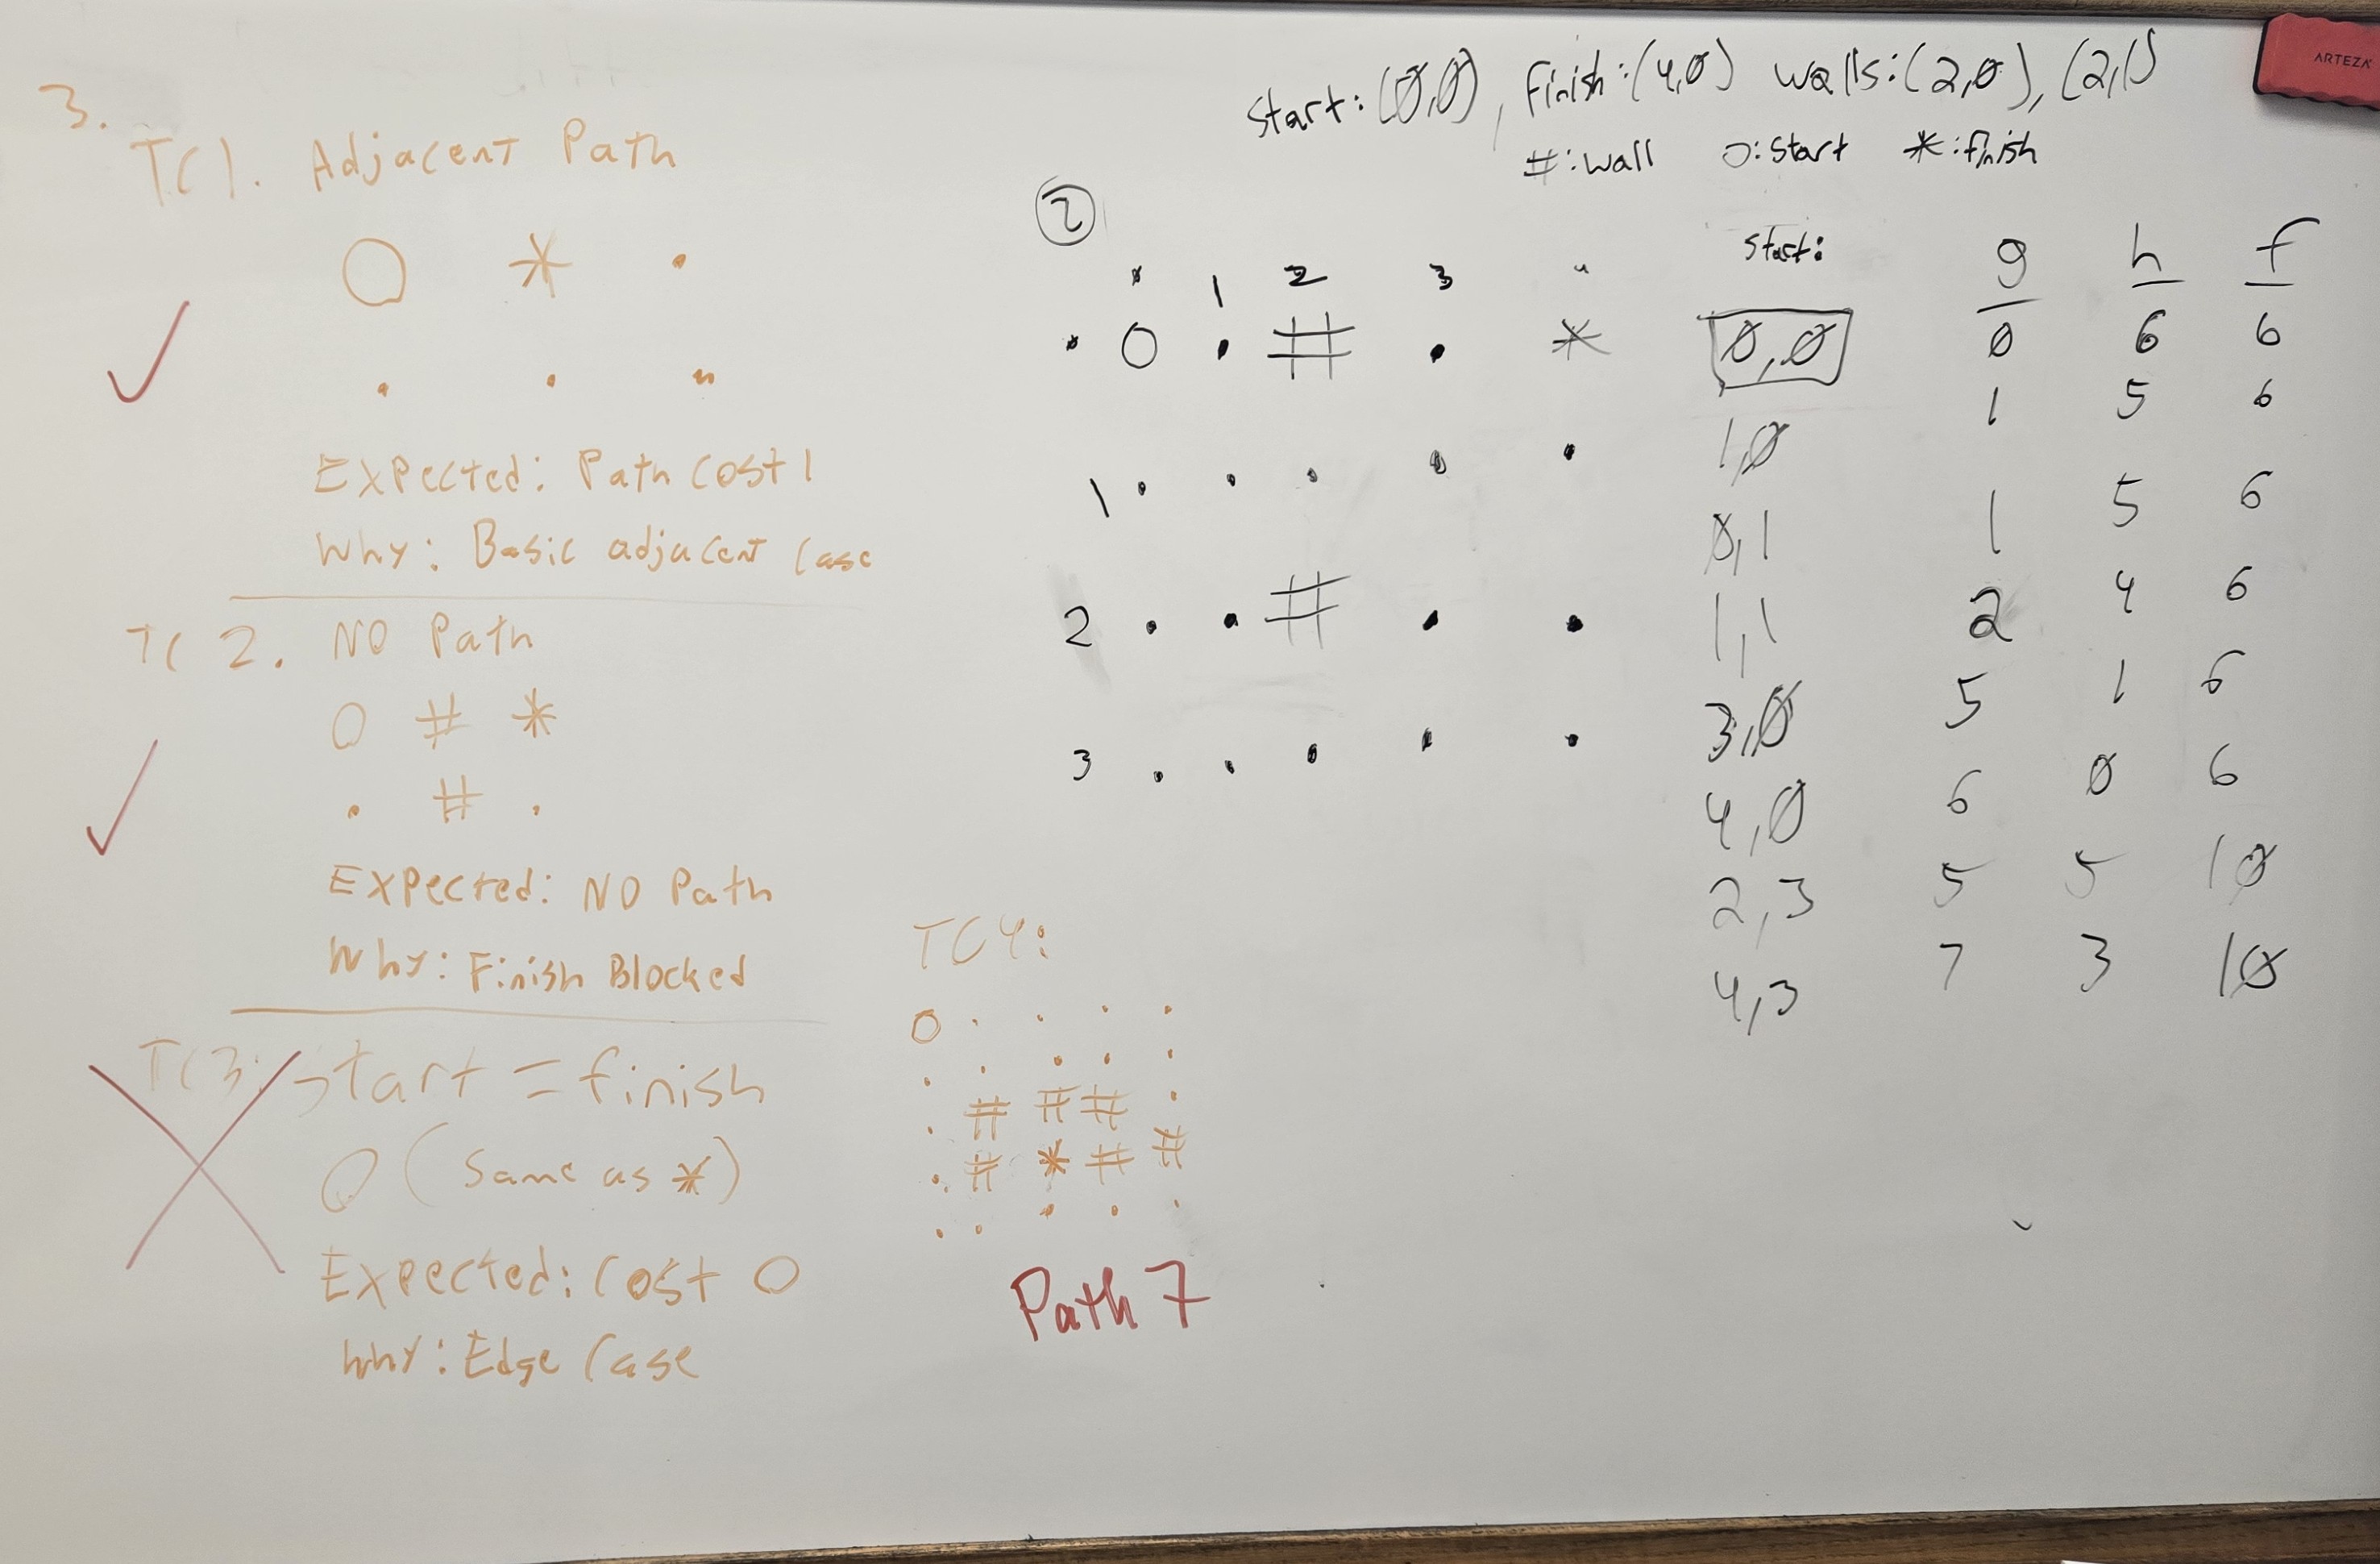 3.
TC1. Adjacent Path
O * .
. . .
Expected: Path Cost 1
Why: Basic adjacent case
TC 2. NO Path
O # *
. # .
Expected: NO Path
Why: Finish Blocked
TC3: Start = finish
O (Same as *)
Expected: Cost O
Why: Edge Case
TC4:
O . . . .
. . . . .
. # # # .
. # * # #
. . . . .
Path 7
Start: (0,0), Finish: (4,0) walls: (2,0), (2,1)
#: wall O: Start *: finish
2
0 1 2 3
0 O . # . *
1 . . . . .
2 . . # . .
3 . . . . .
start: g h f
0,0 0 6 6
1,0 1 5 6
0,1 1 5 6
1,1 2 4 6
3,0 5 1 6
4,0 6 0 6
2,3 5 5 10
4,3 7 3 10
ARTEZA